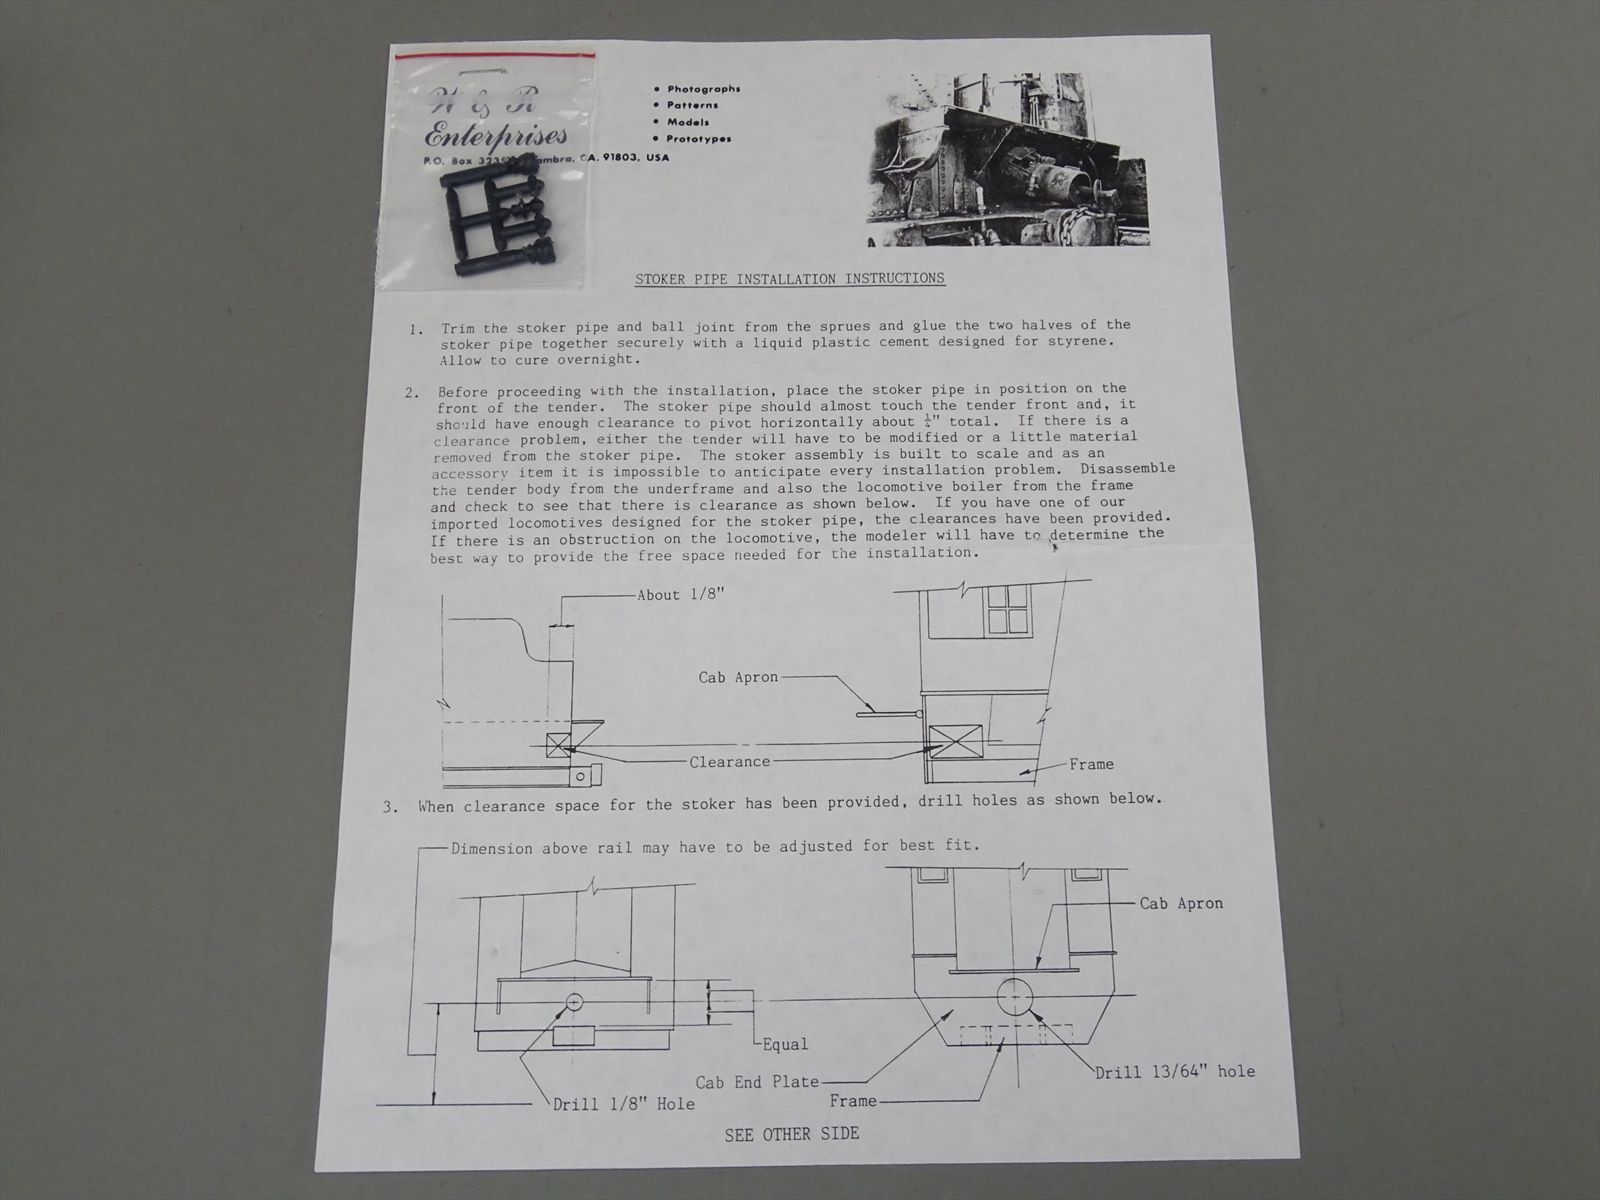 W & R
Enterprises
P.O. Box 323 CA. 91803, USA
• Photographs
• Patterns
• Models
• Prototypes
STOKER PIPE INSTALLATION INSTRUCTIONS
1. Trim the stoker pipe and ball joint from the sprues and glue the two halves of the
stoker pipe together securely with a liquid plastic cement designed for styrene.
Allow to cure overnight.
2. Before proceeding with the installation, place the stoker pipe in position on the
front of the tender. The stoker pipe should almost touch the tender front and, it
should have enough clearance to pivot horizontally about total. If there is a
clearance problem, either the tender will have to be modified or a little material
removed from the stoker pipe. The stoker assembly is built to scale and as an
accessory item it is impossible to anticipate every installation problem. Disassemble
the tender body from the underframe and also the locomotive boiler from the frame
and check to see that there is clearance as shown below. If you have one of our
imported locomotives designed for the stoker pipe, the clearances have been provided.
If there is an obstruction on the locomotive, the modeler will have to determine the
best way to provide the free space needed for the installation.
About 1/8"
Cab Apron
Clearance
Frame
3. When clearance space for the stoker has been provided, drill holes as shown below.
Dimension above rail may have to be adjusted for best fit.
Cab Apron
Equal
Drill 13/64" hole
Cab End Plate
Frame
Drill 1/8" Hole
SEE OTHER SIDE